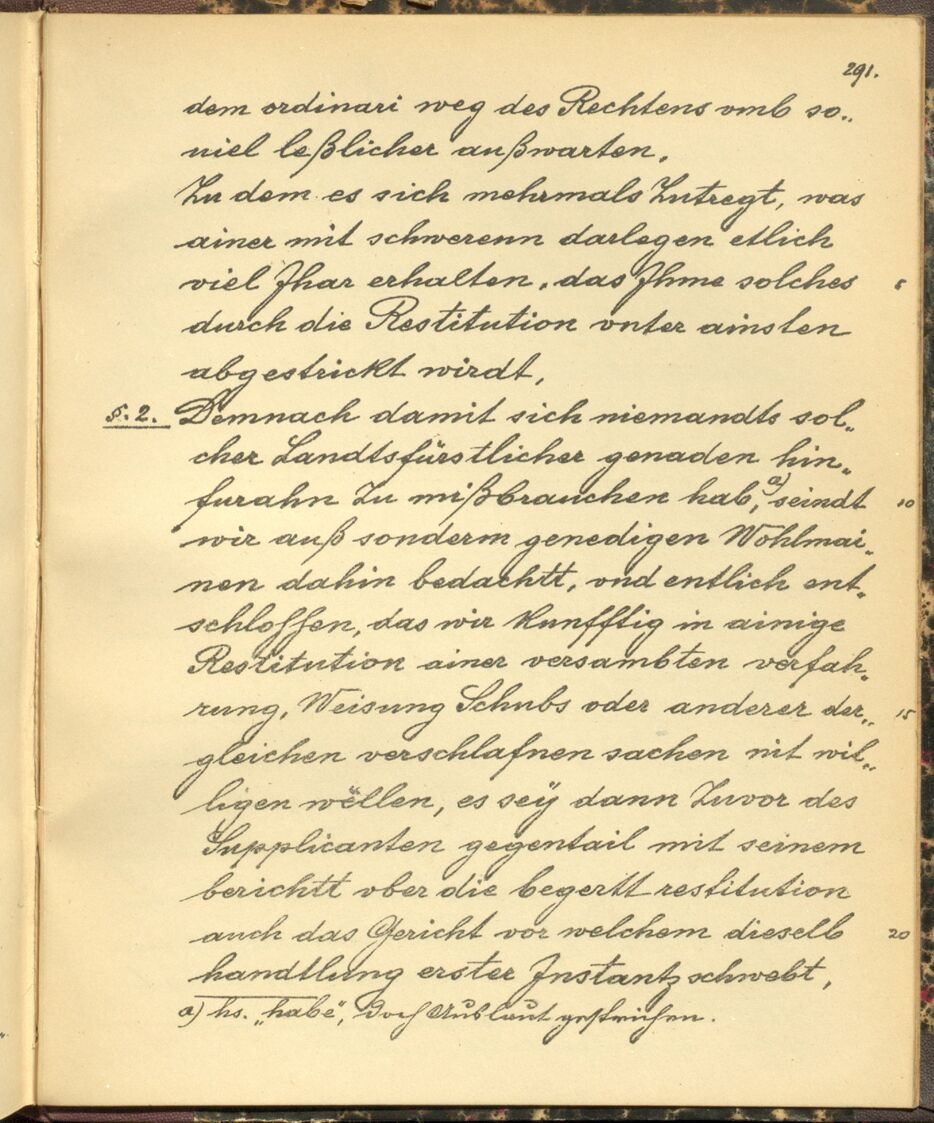 291.
dem ordinari weg des Rechtens vmb so„
uiel leßlicher außwarten.
Zu dem es sich mehrmals Zutregt, was
ainer mit schwerenn darlegen etlich
viel Jhar erhalten, das Jhme solches 5
durch die Restitution vnter ainsten
abgestrickt wirdt,
§. 2. Demnach damit sich niemandts sol„
cher Landtsfürstlicher genaden hin„
furahn Zu mißbrauchen hab,a) seindt 10
wir auß sonderm genedigen Wohlmai„
nen dahin bedachtt, vnd entlich ent„
schlossen, das wir Kunfftig in ainige
Restitution ainer versambten verfah„
rung, Weisung Schubs oder anderer der„ 15
gleichen verschlafnen sachen nit wil„
ligen wëllen, es seÿ dann Zuvor des
Supplicanten gegentail mit seinem
berichtt vber die begertt restitution
auch das Gericht vor welchem dieselb 20
handtlung erster Jnstantz schwebt,
a) hs. „habe“, doch Auslaut gestrichen.